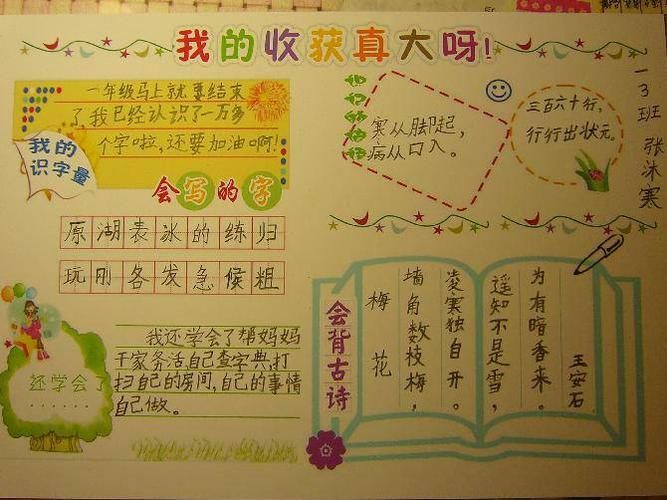 我的收获真大呀!
一年级马上就要结束
了,我已经认识了一万多
个字啦,还要加油啊!
我的
识字量
会写的字
原湖表冰的练归
玩刚各发急候粗
还学会了
......
我还学会了帮妈妈
干家务活,自己查字典,打
扫自己的房间,自己的事情
自己做。
寒从脚起,
病从口入。
三百六十行,
行行出状元。
一3班 张沐寒
会背古诗
梅花
墙角数枝梅,
凌寒独自开。
遥知不是雪,
为有暗香来。
王安石